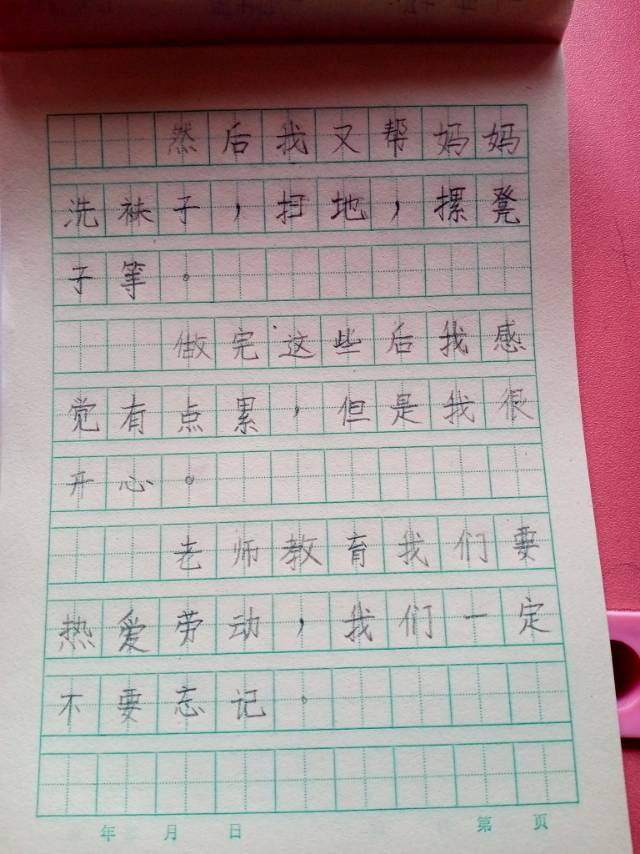 然后我又帮妈妈
洗袜子，扫地，摞凳
子等。
做完这些后我感
觉有点累，但是我很
开心。
老师教育我们要
热爱劳动，我们一定
不要忘记。
年 月 日 第 页